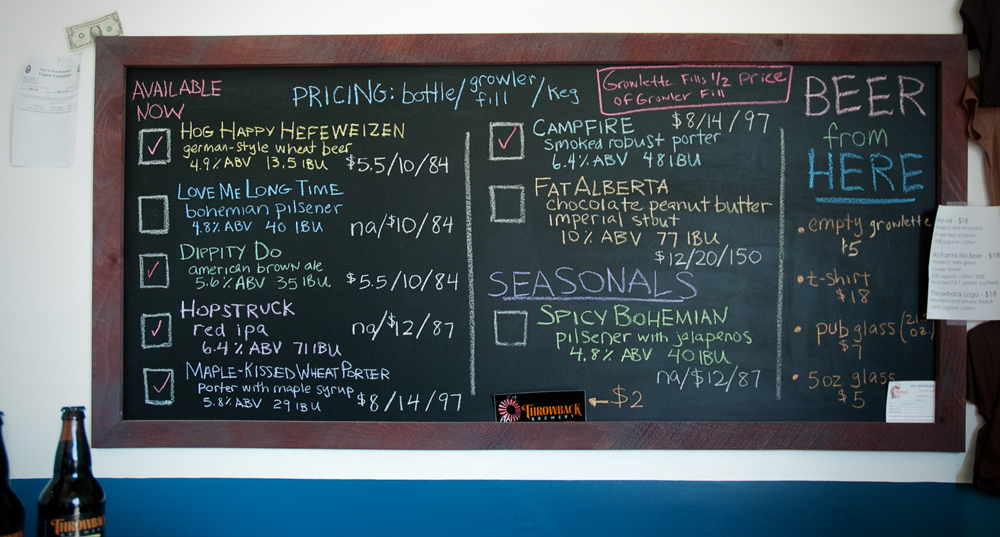 AVAILABLE
NOW
PRICING: bottle/growler fill/keg
Growlette Fills 1/2 Price
of Growler Fill
HOG HAPPY HEFEWEIZEN
german-style wheat beer
4.9% ABV 13.5 IBU $5.5/10/84
LOVE ME LONG TIME
bohemian pilsener
4.8% ABV 40 IBU na/$10/84
DIPPITY DO
american brown ale
5.6% ABV 35 IBU $5.5/10/84
HOPSTRUCK
red ipa na/$12/87
6.4% ABV 71 IBU
MAPLE-KISSED WHEAT PORTER
Porter with maple syrup
5.8% ABV 29 IBU $8/14/97
CAMPFIRE $8/14/97
smoked robust porter
6.4% ABV 48 IBU
FAT ALBERTA
chocolate peanut butter
imperial stout
10% ABV 77 IBU
$12/20/150
SEASONALS
SPICY BOHEMIAN
pilsener with jalapenos
4.8% ABV 40 IBU
na/$12/87
THROWBACK
BREWERY
$2
BEER
from
HERE
• empty growlette
$5
• t-shirt
$18
• pub glass
$7
• 5oz glass
$5
No Beer - $18
Throwback Logo - $18
THROWBACK